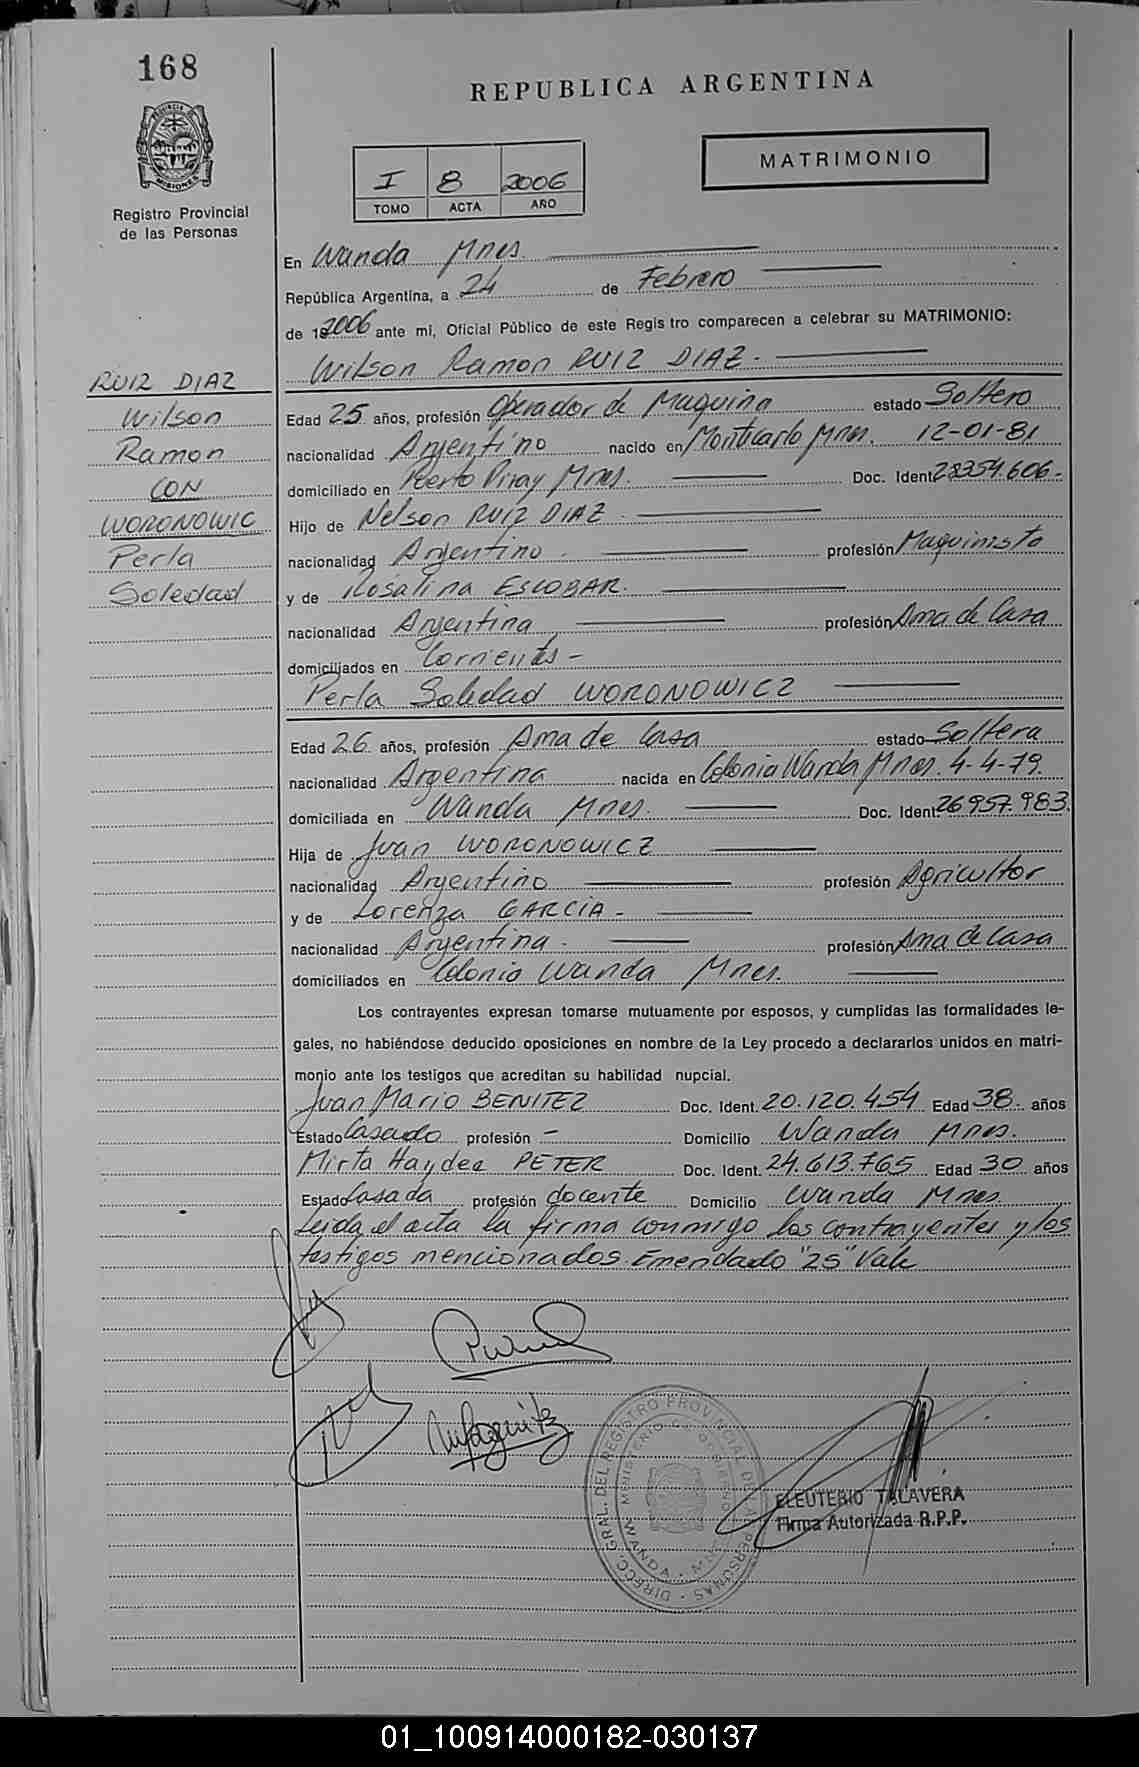 168
REPUBLICA ARGENTINA
PROVINCIA DE MISIONES
Registro Provincial
de las Personas
I 8 2006
TOMO ACTA AÑO
MATRIMONIO
En Wanda Mnes.
República Argentina, a 24 de Febrero
de 2006 ante mi, Oficial Público de este Regis tro comparecen a celebrar su MATRIMONIO:
Wilson Ramon RUIZ DIAZ.
RUIZ DIAZ
Wilson
Ramon
CON
WORONOWIC
Perla
Soledad
Edad 25 años, profesión Operador de Maquina estado Soltero
nacionalidad Argentino nacido en Montecarlo Mnes. 12-01-81
domiciliado en Puerto Piray Mnes. Doc. Ident. 28354.606.-
Hijo de Nelson RUIZ DIAZ
nacionalidad Argentino. profesión Maquinista
y de Rosalina ESCOBAR.
nacionalidad Argentina profesión Ama de Casa
domiciliados en Corrientes -
Perla Soledad WORONOWICZ
Edad 26 años, profesión Ama de Casa estado Soltera
nacionalidad Argentina nacida en Colonia Wanda Mnes. 4-4-79.
domiciliada en Wanda Mnes. Doc. Ident. 26957.983.
Hija de Juan WORONOWICZ
nacionalidad Argentino profesión Agricultor
y de Lorenza GARCIA -
nacionalidad Argentina. profesión Ama de Casa
domiciliados en Colonia Wanda Mnes.
Los contrayentes expresan tomarse mutuamente por esposos, y cumplidas las formalidades le-
gales, no habiéndose deducido oposiciones en nombre de la Ley procedo a declararlos unidos en matri-
monio ante los testigos que acreditan su habilidad nupcial.
Juan Mario BENITEZ Doc. Ident. 20.120.454 Edad 38 años
Estado Casado profesión - Domicilio Wanda Mnes.
Mirta Haydee PETER Doc. Ident. 24.613.765 Edad 30 años
Estado Casada profesión docente Domicilio Wanda Mnes.
Leida el acta la firma conmigo los contrayentes y los
testigos mencionados. Emendado "25" Vale
DIRECC. GRAL. DEL REGISTRO PROVINCIAL DE LAS PERSONAS
MINISTERIO DE GOBIERNO
WANDA - MNES
ELEUTERIO TALAVERA
Firma Autorizada R.P.P.
01_100914000182-030137